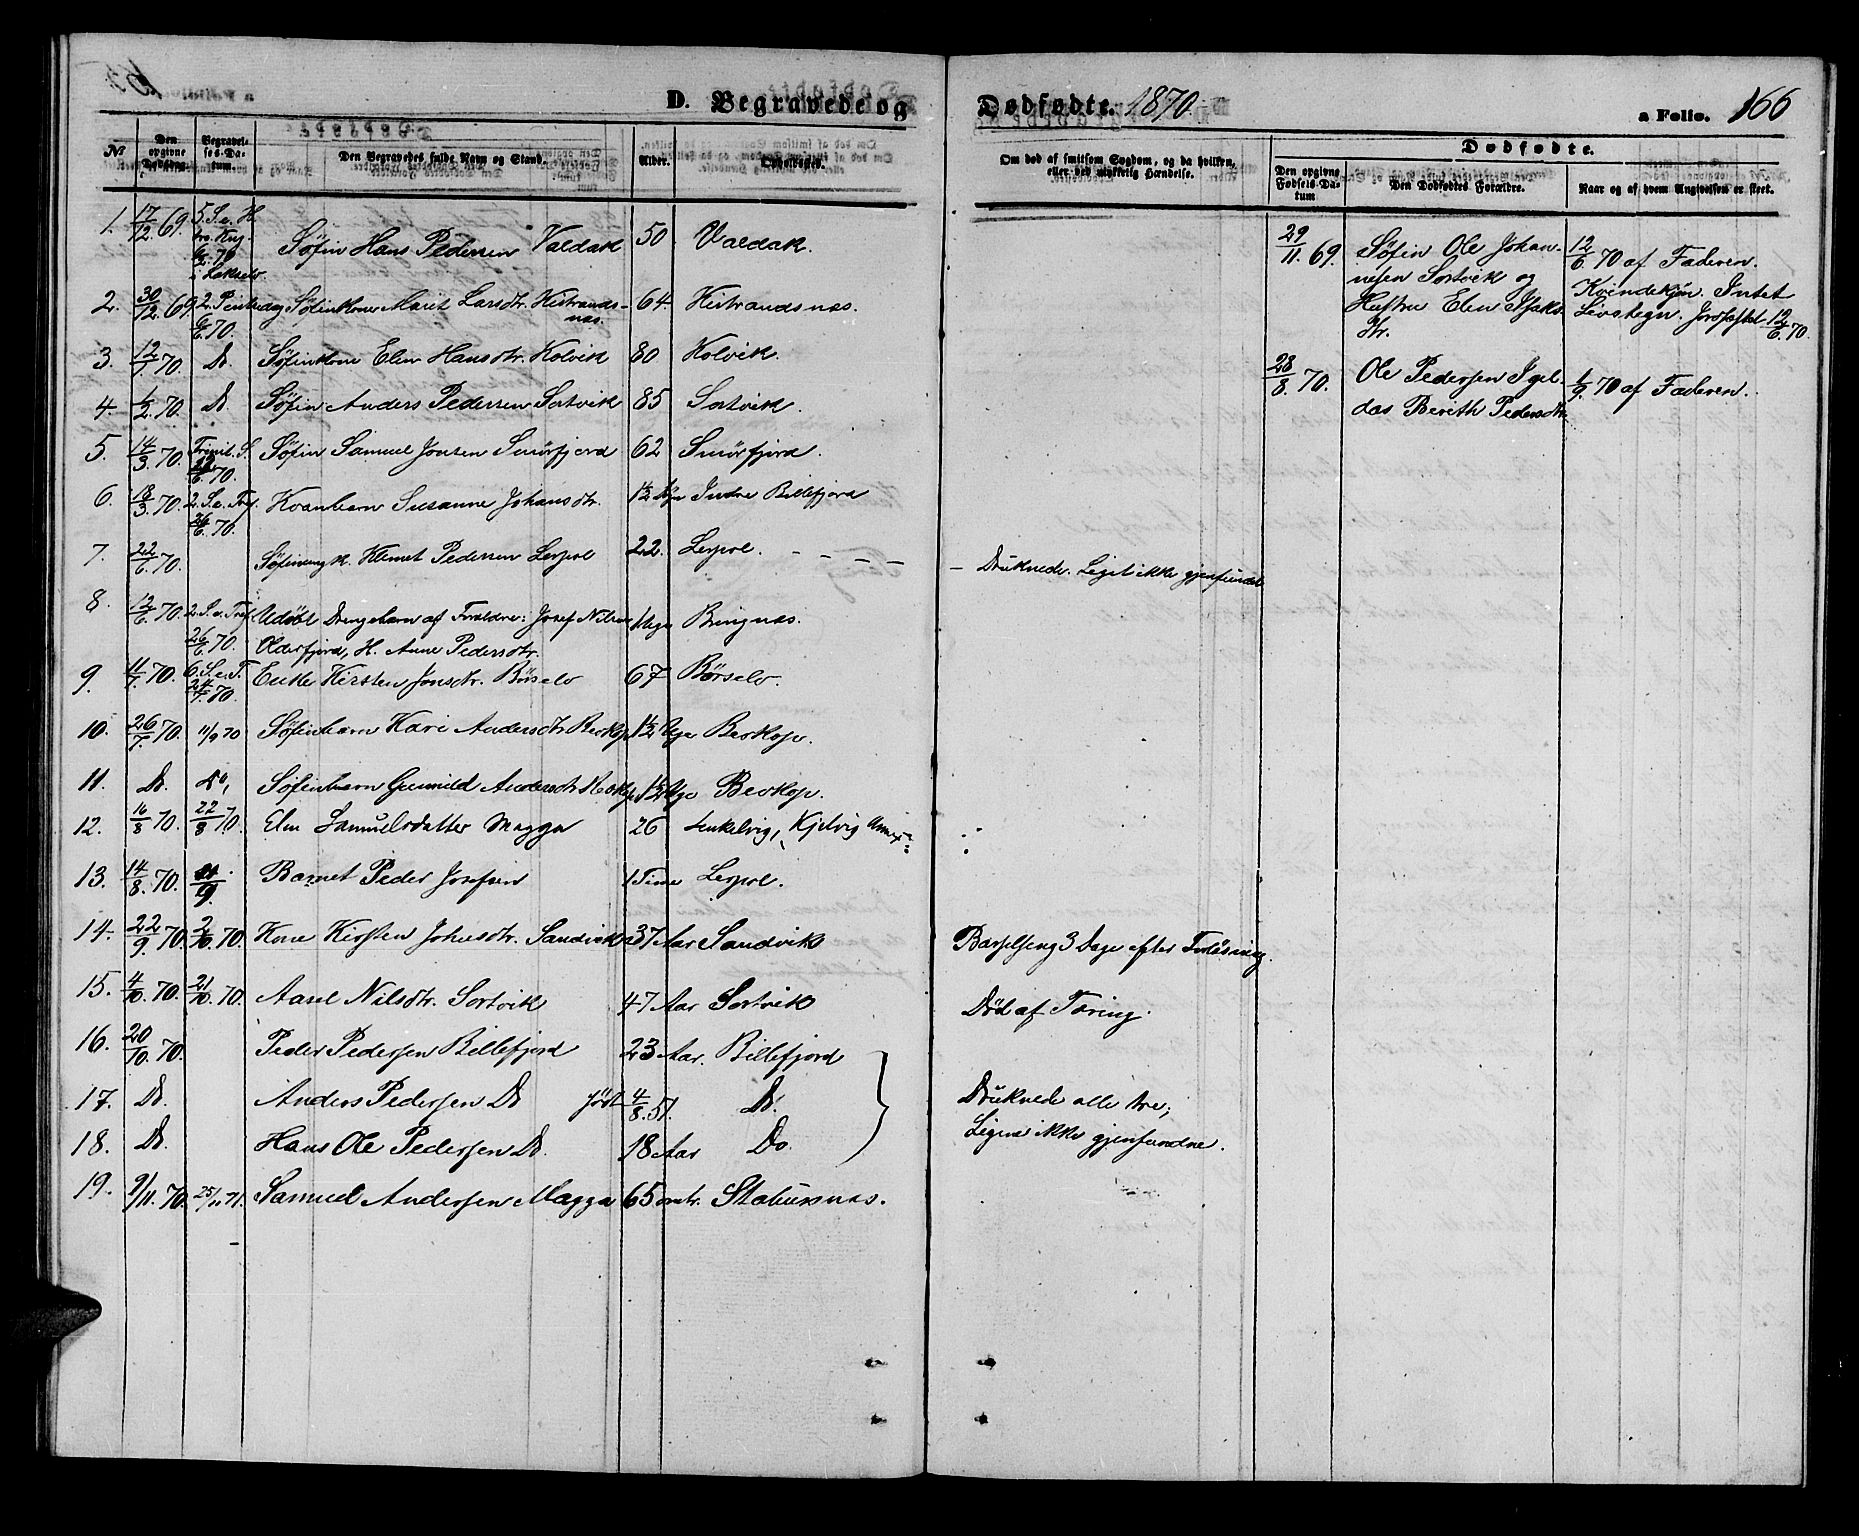 D. Begravede og Dødfødte. 1870. a Folio. 166
No
Den opgivne Dødsdag.
Begravelses-Datum.
Den Begravedes fulde Navn og Stand.
Alder.
Opholdssted.
Om død af smitsom Sygdom, og da hvilken, eller ved ulykkelig Hændelse.
Dødfødte.
Den opgivne Fødsels-Datum
Den Dødfødtes Forældre.
Naar og af hvem Angivelsen er skeet.
1. 17/12 69. 5. S. e. H. 70 i Lakselv. Søfin Hans Pedersen Valdak 50 Valdak.
2. 30/12 69 2 Pintsedag 6/6 70. Søfinkone Marit Larsdtr. Kistrandsnæs. 64. Kistrandsnæs.
3. 12/1 70. Do. Søfinkone Elen Hansdtr. Kolvik 80 Kolvik.
4. 1/2 70. Do. Søfin Anders Pedersen Sortvik 85 Sortvik.
5. 14/3 70. Trinit. S. 12/6 70. Søfin Samuel Jonsen Smörfjord 62 Smörfjord.
6. 18/3 70. 2. S. e. Tref. 26/6 70. Kvanbarn Susanne Johansdtr. 1½ Indre Billefjord
7. 22/6 70. Søfinung k. Klemet Pedersen Lerpol 22. Lerpol. - - - - Druknede. Liget ikke gjenfundet
8. 12/6 70. 2. S. e. Tref. 26/6 70. Udöbt Drengebarn af Forældre: Josef Nilsen
Olderfjord, H. Anne Pedersdtr. 1 Uge Bringnæs.
9. 11/7 70. 6. S. e. T. 24/7 70. Enke Kirsten Jonsdtr. Börselv 67 Börselv.
10. 26/7 70. 11/9 70 Søfinbarn Kari Andersdtr Beskop 1½ Uge Beskop.
11. Do. do, Søfinbarn Gunnild Andersdtr Beskop 1½ Uge Beskop.
12. 16/8 70. 22/8 70. Elen Samuelsdatter Magga 26 Kjelvig Annex
13. 14/8 70. Barnet Peder Josefsen 1 Time Lerpol.
14. 22/9 70. 2/10 70. Kone Kirsten Johnsdtr. Sandvik 37 Aar Sandvik Barselseng 3 Dage efter Forlösning.
15. 4/10 70. 21/10 70. Aane Nilsdtr. Sortvik 47 Aar Sortvik Död af Tæring.
16. 20/10 70. Peder Pedersen Billefjord 23 Aar. Billefjord
17. Do. Anders Pedersen Do födt 4/8 51. Do. Druknede alle tre;
18. Do. Hans Ole Pedersen Do. 18 Aar Do. Ligene ikke gjenfundne.
19. 9/11 70. 25/ 71. Samuel Andersen Magga 65 omtr. Stabursnæs.
29/11 69. Søfin Ole Johannesen Sortvik og Hustru Elen Isaksdtr. 12/6 70 af Faderen. Kvindekjön. Intet Livstegn. Jordfæstet 12/6 70.
28/8 70. Ole Pedersen Igeldas Berith Pedersdtr 1/9 70 af Faderen.